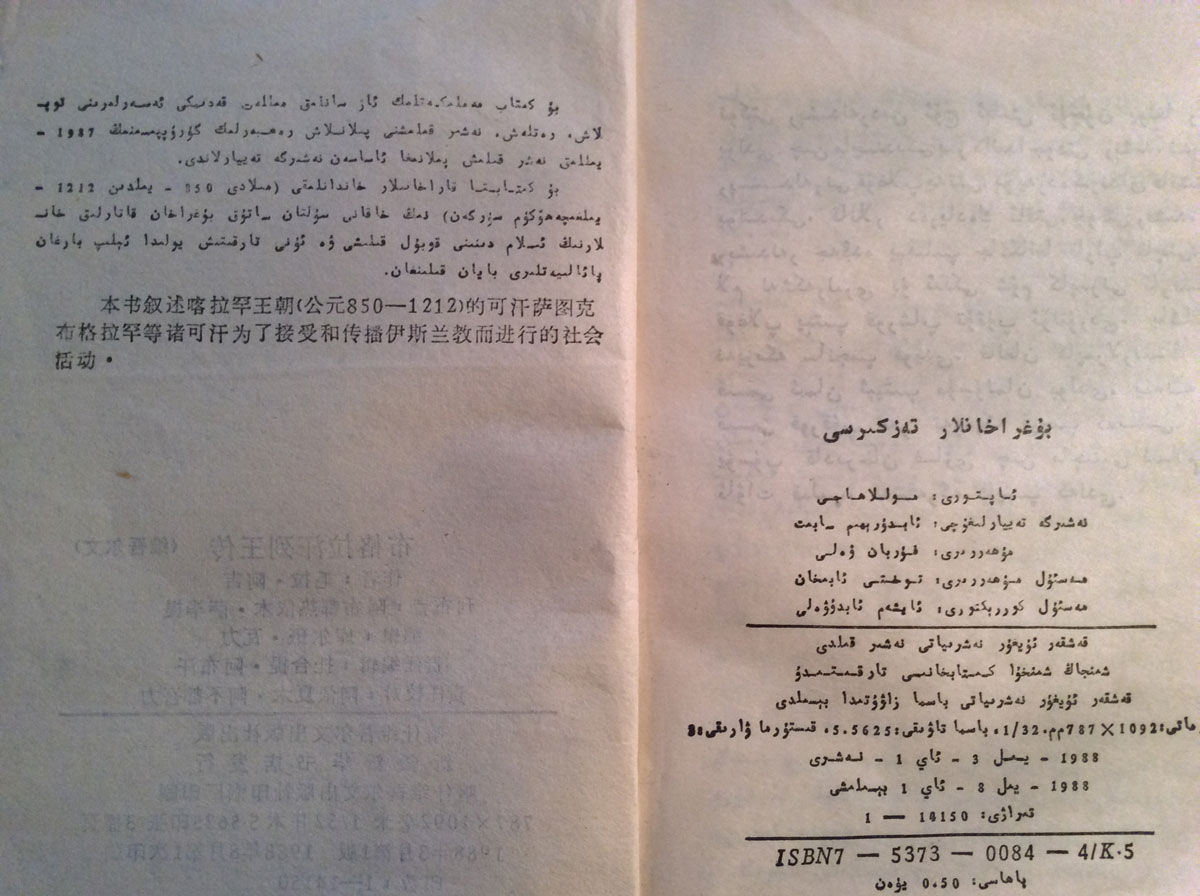 بۇ كىتاب مەملىكەتلىك ئاز سانلىق مىللەت قەدىمكى ئەسەرلىرىنى توپ-
لاش، رەتلەش، نەشىر قىلىشنى پىلانلاش رەھبەرلىك گۇرۇپپىسىنىڭ 1987 -
يىللىق نەشر قىلىش پىلانىغا ئاساسەن نەشىرگە تەييارلاندى.
بۇ كىتابتا قاراخانىلار خاندانلىقى (مىلادى 850 - يىلدىن 1212 -
يىلغىچە ھۆكۈم سۈرگەن) نىڭ خاقانى سۇلتان ساتۇق بۇغراخان قاتارلىق خان-
لارنىڭ ئىسلام دىنىنى قوبۇل قىلىشى ۋە ئۇنى تارقىتىش يولىدا ئېلىپ بارغان
پائالىيەتلىرى بايان قىلىنغان.
本书叙述喀拉罕王朝(公元850—1212)的可汗萨图克
布格拉罕等诸可汗为了接受和传播伊斯兰教而进行的社会
活动·
بۇغراخانلار تەزكىرىسى
ئاپتورى: موللاھاجى
نەشىرگە تەييارلىغۇچى: ئابدۇرېھىم سابىت
مۇھەررىرى: قۇربان ۋەلى
مەسئۇل مۇھەررىرى: توختى ئابىخان
مەسئۇل كوررېكتورى: ئايشەم ئابدۇۋەلى
قەشقەر ئۇيغۇر نەشرىياتى نەشىر قىلدى
شىنجاڭ شىنخۇا كىتابخانىسى تارقىتىدۇ
قەشقەر ئۇيغۇر نەشرىياتى باسما زاۋۇتىدا بېسىلدى
ماتى: 1092×787مم، 1/32. باسما تاۋىقى: 5.5625، قىستۇرما ۋارىقى: 3
1988 - يىل 3 - ئاي 1 - نەشرى
1988 - يىل 8 - ئاي 1 بېسىلىشى
تىراژى: 14150 — 1
ISBN7 — 5373 — 0084 — 4/K·5
پاھاسى: 0.50 يۈەن